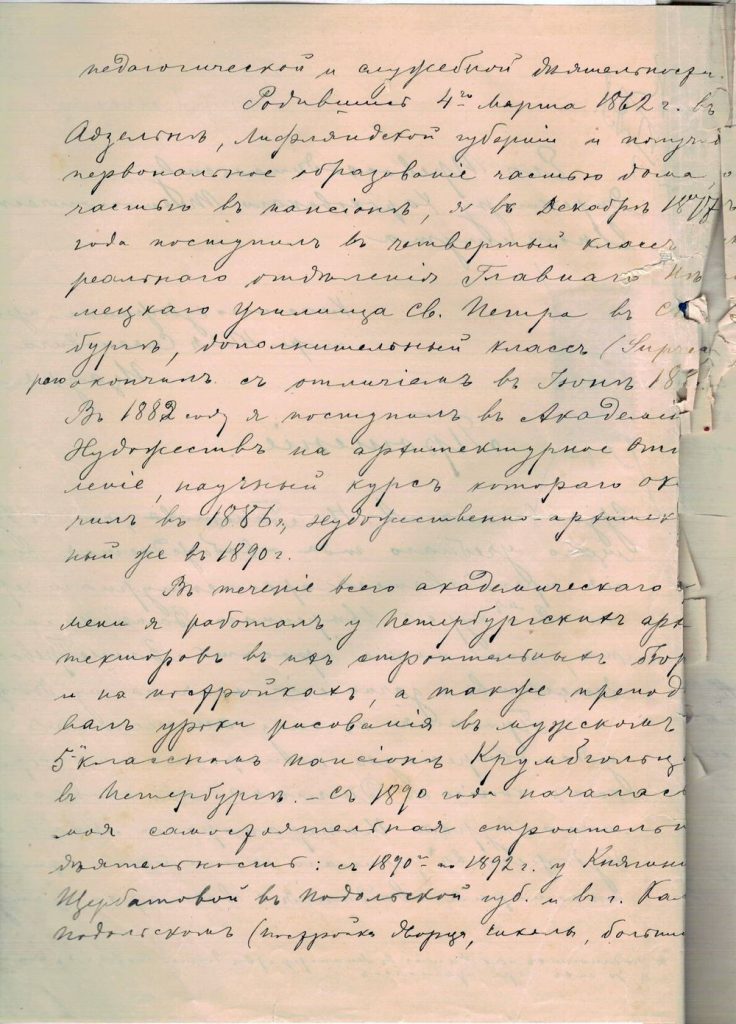 педагогической и служебной дѣятельности.
Родившись 4го марта 1862 г. въ
Адзельнѣ, Лифляндской губерніи и получ
первональное образованіе частью дома,
частью въ пансіонѣ, я въ Декабрѣ 1877
года поступилъ въ четвертый классъ
реальнаго отдѣленія Главнаго Нѣ
мецкаго Училища Св. Петра въ С
бургѣ, дополнительный классъ (Supre
раго окончилъ съ отличіемъ въ Іюнѣ 18
Въ 1882 году я поступилъ въ Академі
Художествъ на архитектурное Отд
леніе, научный курсъ котораго ок
чилъ въ 1886 г., художественно-архитек
ный же въ 1890 г.
Въ теченіе всего академическаго
мени я работалъ у Петербургскихъ архи
текторовъ въ ихъ строительныхъ бюр
и на постройкахъ, а также препод
валъ уроки рисованія въ мужскомъ
5и классномъ пансіонѣ Крумбгольц
въ Петербургѣ. – Съ 1890 года началас
моя самостоятельная строительн
дѣятельность: съ 1890го по 1892 г. у Княгин
Щербатовой въ Подольской губ. и въ г. Кам
Подольскомъ (постройка дворца, школы, больни